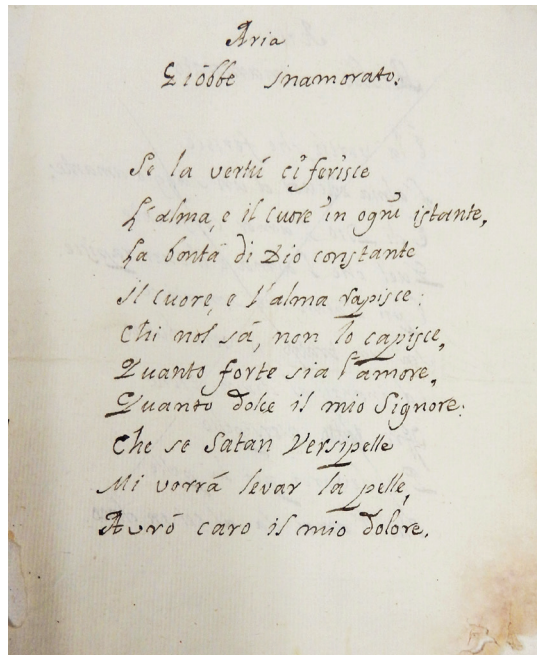 Aria
Giōbbe inamorato.
Se la vertú ci ferisce
L'alma, e il cuore in ogni istante,
La bontá di Dio constante
Il cuore, e l'alma rapisce:
Chi nol sá, non lo capisce,
Quanto forte sia l'amore,
Quanto dolce il mio Signore:
Che se Satan Versipelle
Mi vorrá levar la pelle,
Avró caro il mio dolore.